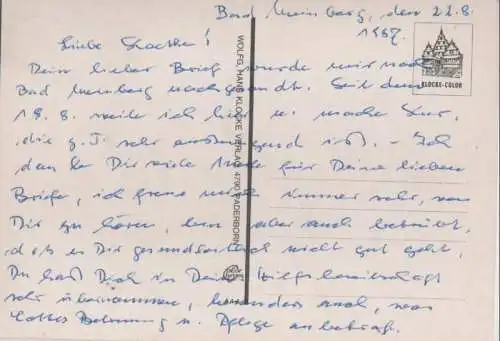 Bad Meinberg, den 22.8.
1987.
Liebe !
Dein lieber Brief wurde mir nach
Bad Meinberg nachgesandt. Seit dem
19.8. weile ich hier u. mache Kur,
die z.T. sehr anstrengend ist. - Ich
danke Dir viele Male für Deine lieben
Briefe, ich freue mich immer sehr, von
Dir zu hören, bin aber auch betrübt,
daß es Dir gesundheitlich nicht gut geht,
Du hast Dich in Deiner Hilfsbereitschaft
sehr übernommen, besonders auch, was
Betreuung u. Pflege anbetraf.
KLOCKE-COLOR
WOLFG. HANS KLOCKE VERLAG, 4790 PADERBORN